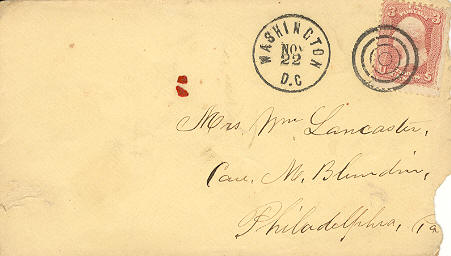 WASHINGTON
NOV
22
D.C
3 3
Mrs. Wm Lancaster,
Care M. Blundin,
Philadelphia, Pa